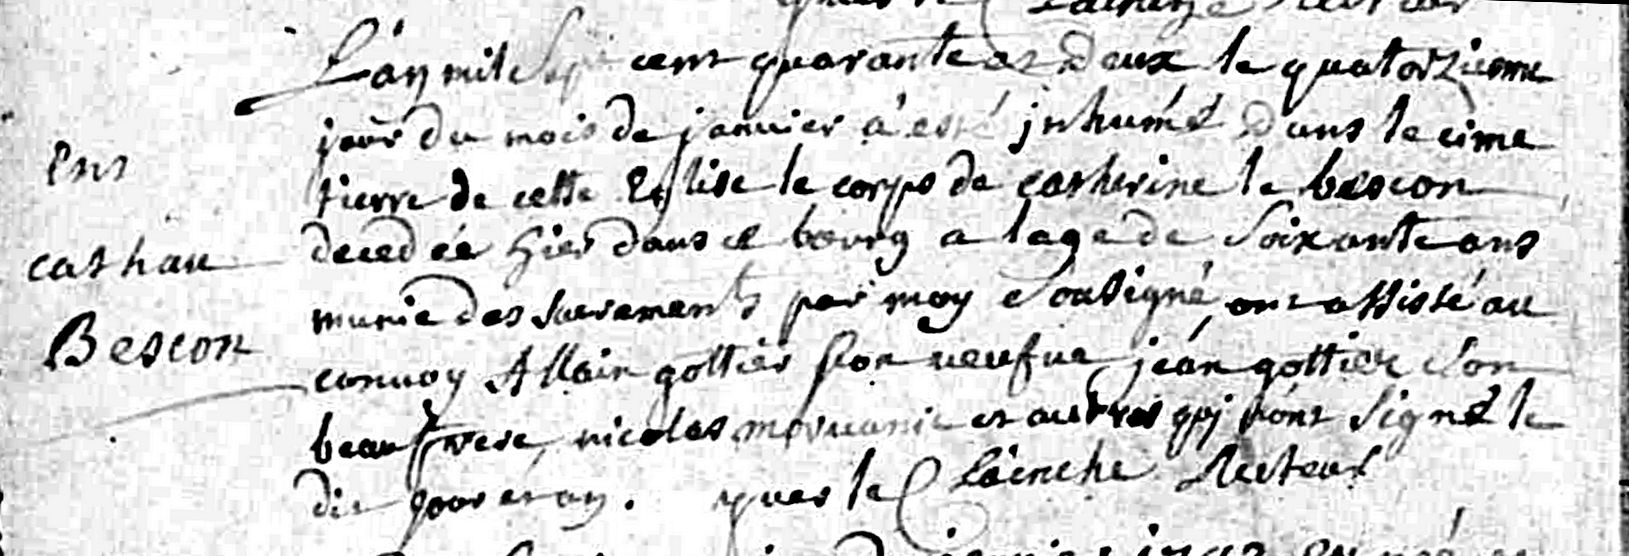 L'an mil Sept cent quarante et Deux le quatorzieme
jour du mois de janvier a esté jnhumé Dans le cime
Ent
tierre de cette Eglise le corps de catherine le bescon
decedée hier dans ce bourg a lage de Soixante ans
cathau
munie des sacrements par moy Soussigné, ont assisté au
Bescon
convoy Allain gottier son veufve jean gottier Son
beaufrere, nicolas morvanic et autres qui n'ont signé le
dit jour et an. yves le Lainche Recteur